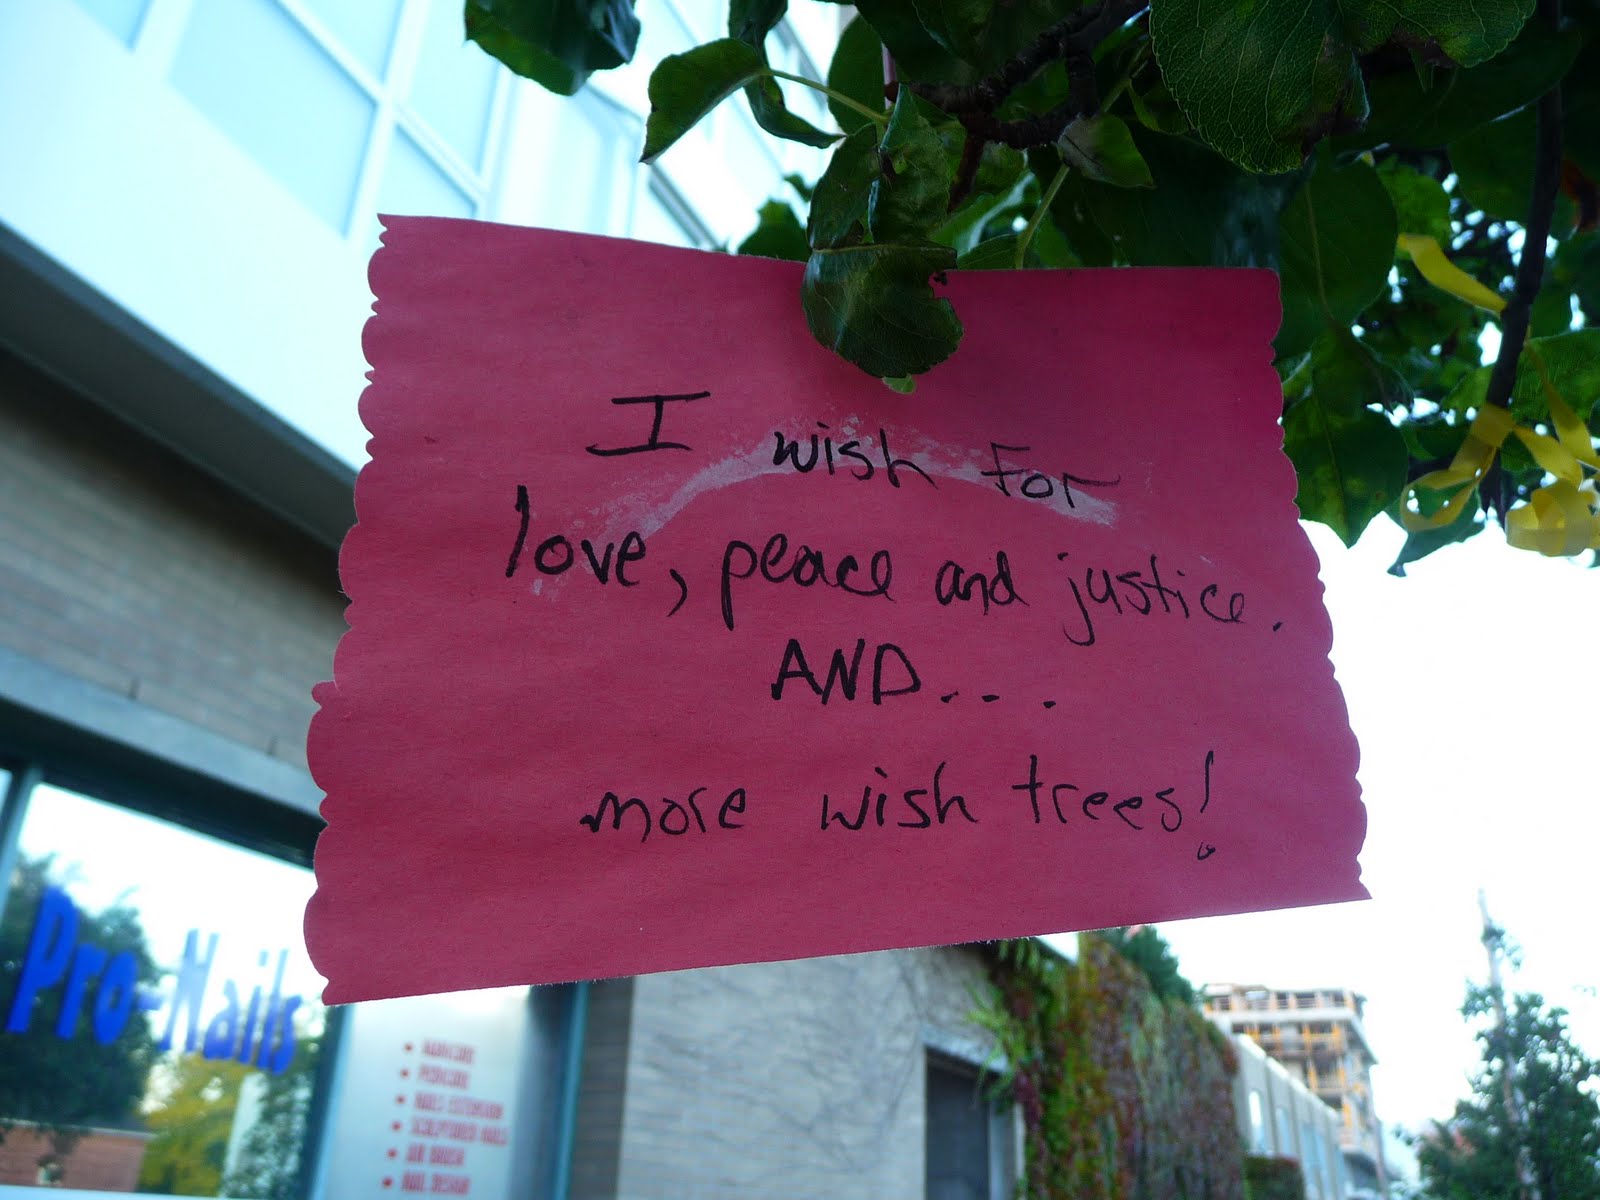 I wish For
love, peace and justice.
AND...
more wish trees!
Pro-Nails
• MANICURE
• PEDICURE
• NAILS EXTENSION
• SCULPTURED NAILS
• AIR BRUSH
• NAIL DESIGN